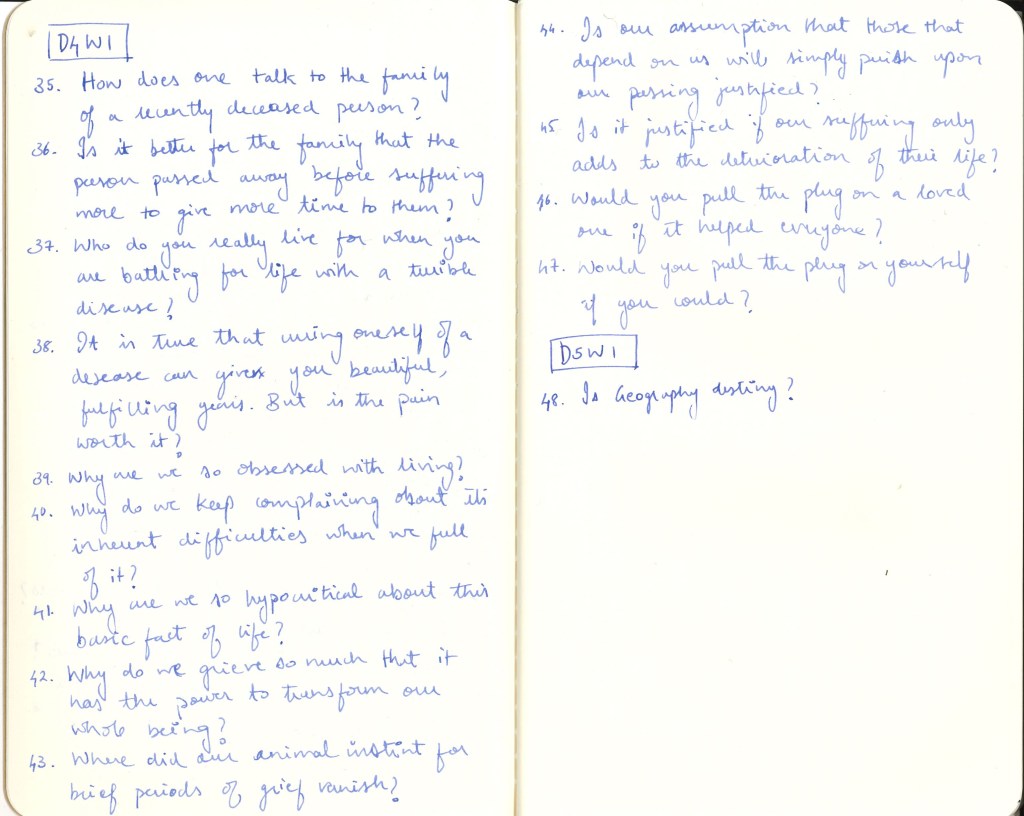 D4W1
35. How does one talk to the family
of a recently deceased person?
36. Is it better for the family that the
person passed away before suffering
more to give more time to them?
37. Who do you really live for when you
are bathing for life with a terrible
disease?
38. It is true that curing oneself of a
desease can give you beautiful,
fulfilling years. But is the pain
worth it?
39. Why are we so obsessed with living?
40. Why do we keep complaining about its
inherent difficulties when we full
of it?
41. Why are we so hypocritical about this
basic fact of life?
42. Why do we grieve so much that it
has the power to transform our
whole being?
43. Where did our animal instint for
brief periods of grief vanish?
44. Is our assumption that those that
depend on us will simply perish upon
our passing justified?
45. Is it justified if our suffering only
adds to the deterioration of their life?
46. Would you pull the plug on a loved
one if it helped everyone?
47. Would you pull the plug on yourself
if you could?
D5W1
48. Is Geography destiny?